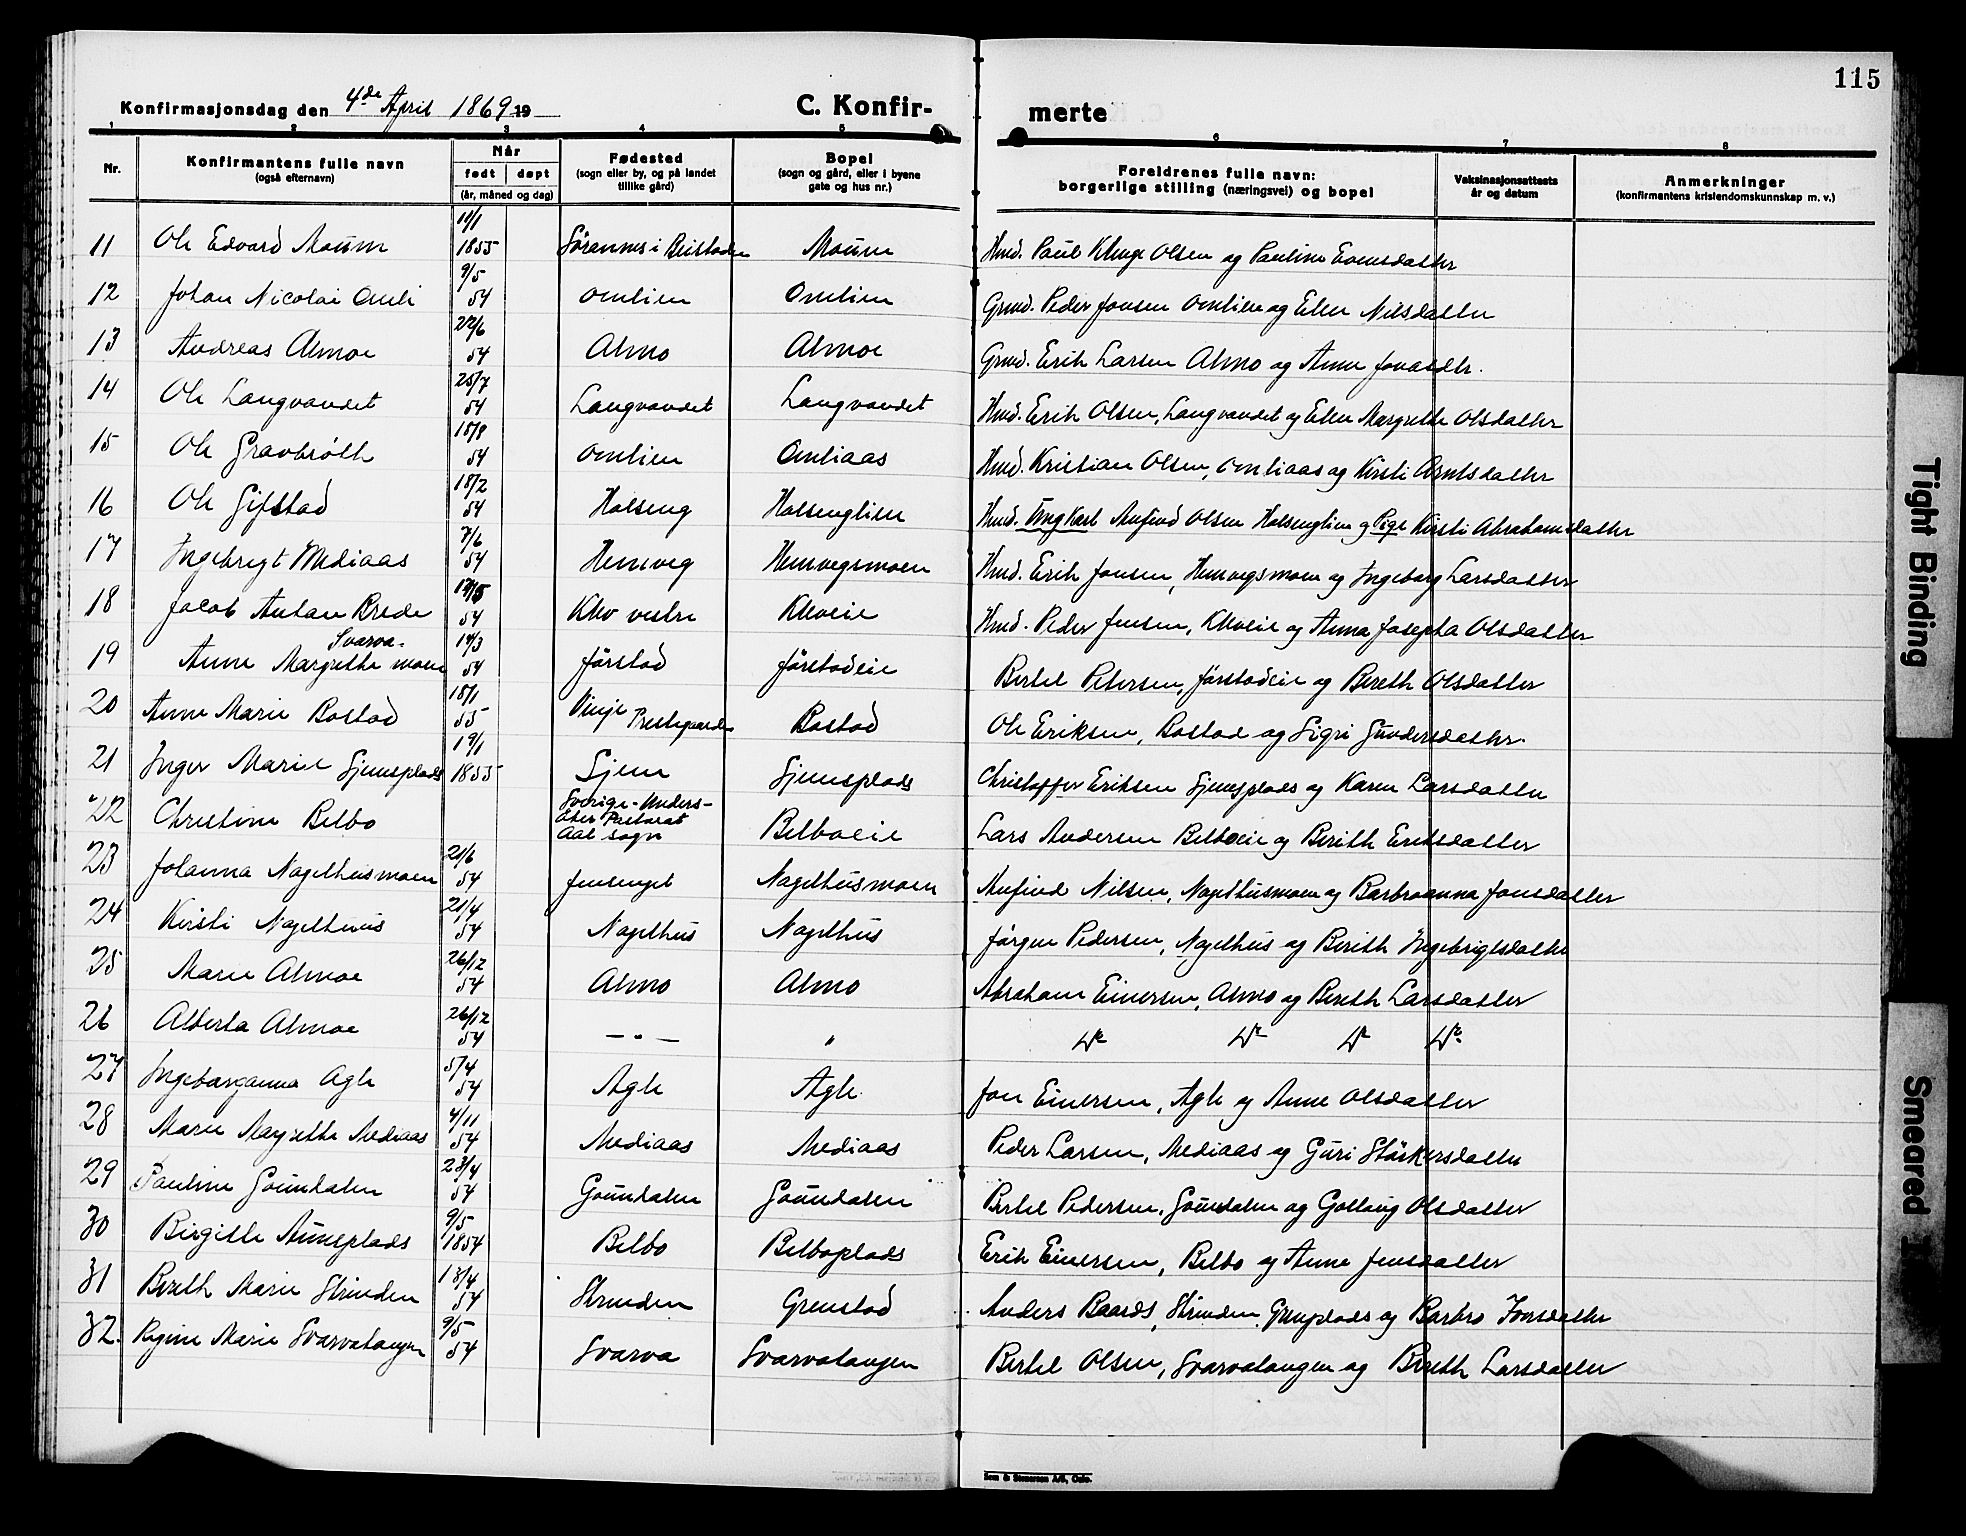 115
Konfirmasjonsdag den 4de April 1869 19
C. Konfir-
merte
1 2 3 4 5 6 7 8
Nr.
Konfirmantens fulle navn
(også efternavn)
Når
født døpt
(år, måned og dag)
Fødested
(sogn eller by, og på landet
tillike gård)
Bopel
(sogn og gård, eller i byene
gate og hus nr.)
Foreldrenes fulle navn:
borgerlige stilling (næringsvei) og bopel
Vaksinasjonsattests
år og datum
Anmerkninger
(konfirmantens kristendomskunnskap m. v.)
11 Ole Edvard Moum 11/1 1855 i Beistaden Moum Hmd. Paul Kluge Olsen og Pauline Evensdatter
12 Johan Nicolai Omli 9/5 54 Omlien Omlien Grmd. Peder Jonsen Omlien og Elen Nilsdatter
13 Andreas Almoe 22/6 54 Almo Almoe Grmd. Erik Larsen Almo og Anne Jonasdtr.
14 Ole Langvandet 25/7 54 Langvandet Langvandet Hmd. Erik Olsen, Langvandet og Elen Margrethe Olsdatter
15 Ole Gravbrøtt 15/8 54 Omlien Omliaas Hmd. Kristian Olsen, Omliaas og Kirsti Arntsdatter
16 Ole Gifstad 18/2 54 Halseng Halsenglien Hmd. Ungkarl Anfind Olsen Halsenglien og Pige Kirsti Abrahamsdatter
17 Ingebrigt Mediaas 7/6 54 Hemveg Hemvegsmoen Hmd. Erik Jonsen, Hemvegsmoen og Ingeborg Larsdatter
18 Jacob Antan Brede 54 Klev vestre Klevеie Hmd. Peder Jensen, Kleveie og Anna Josepha Olsdatter
19 Anne Margrethe Svarva-moen 14/3 54 Jørstad Jørstadeie Bertel Petersen, Jørstadeie og Bereth Olsdatter
20 Anne Marie Bostad 18/1 55 Vinje Prestegaarden Bostad Ole Eriksen, Bostad og Sigri Gundersdatter
21 Inger Marie Gjemsplads 19/1 1855 Gjem Gjemsplads Christoffer Eriksen Gjemsplads og Karen Larsdatter
22 Christine Belbo Sverige-Unders-åker Pastorat Aal sogn Belboeie Lars Andersen Belboeie og Berith Eriksdatter
23 Johanna Nagelhusmoen 21/6 54 Jensenget Nagelhusmoen Anfind Nilsen, Nagelhusmoen og Barbroanna Jonsdatter
24 Kirsti Nagelhuus 21/4 54 Nagelhus Nagelhus Jørgen Pedersen, Nagelhus og Berith Ingebrigtsdatter
25 Marie Almoe 26/12 54 Almo Almo Abraham Einersen, Almo og Bereth Larsdatter
26 Alberta Almoe 26/12 54 — " — " Do Do Do Do
27 Ingeborganna Agle 5/4 54 Agle Agle Jon Einersen, Agle og Anne Olsdatter
28 Marie Margrethe Mediaas 4/11 54 Mediaas Mediaas Peder Larsen, Mediaas og Guri Størkersdatter
29 Pauline Gaundalen 23/4 54 Gaundalen Gaundalen Bertel Pedersen, Gaundalen og Gollaug Olsdatter
30 Birgitte Aunesplads 9/5 1854 Belbo Belboplads Erik Einersen, Belbo og Anne Jensdatter
31 Bereth Marie Strinden 13/4 54 Strinden Grenstad Anders Baards, Strinden og Barbro Ivarsdatter
32. Regine Marie Svarvatangen 9/5 54 Svarva Svarvatangen Bertel Olsen, Svarvatangen og Bereth Larsdatter
Sem & Stenersen A/S, Oslo.
Tight Binding
Smeared